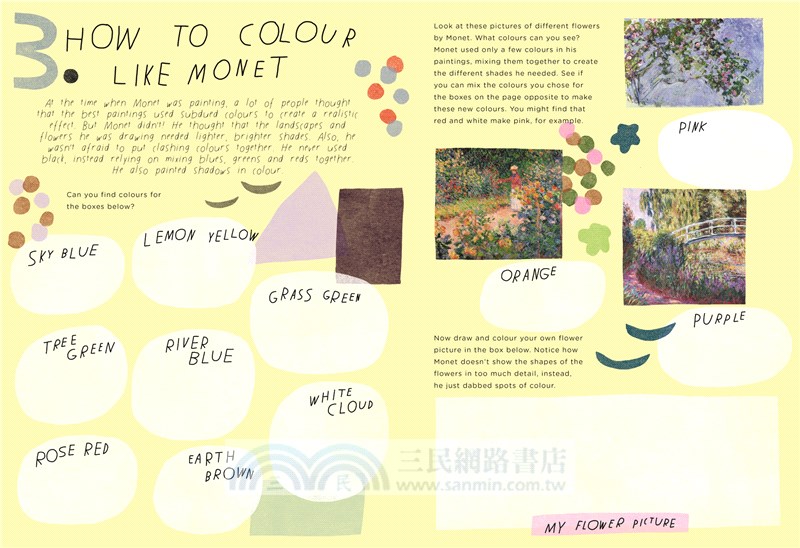 3.
HOW TO COLOUR
LIKE MONET
At the time when Monet was painting, a lot of people thought
that the best paintings used subdued colours to create a realistic
effect. But Monet didn't! He thought that the landscapes and
flowers he was drawing needed lighter, brighter shades. Also, he
wasn't afraid to put clashing colours together. He never used
black, instead relying on mixing blues, greens and reds together.
He also painted shadows in colour.
Can you find colours for
the boxes below?
SKY BLUE
LEMON YELLOW
GRASS GREEN
TREE
GREEN
RIVER
BLUE
WHITE
CLOUD
ROSE RED
EARTH
BROWN
Look at these pictures of different flowers
by Monet. What colours can you see?
Monet used only a few colours in his
paintings, mixing them together to create
the different shades he needed. See if
you can mix the colours you chose for
the boxes on the page opposite to make
these new colours. You might find that
red and white make pink, for example.
PINK
ORANGE
PURPLE
Now draw and colour your own flower
picture in the box below. Notice how
Monet doesn't show the shapes of the
flowers in too much detail, instead,
he just dabbed spots of colour.
MY FLOWER PICTURE
民
三民網路書店
www.sanmin.com.tw